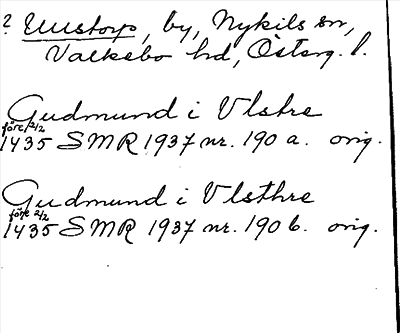 ? Ulustorp, by, Nykils sn,
Valkebo hd, Österg. l.
Gudmund i Vlstre
före 2/2
1435 SMR 1937 nr. 190 a. orig.
Gudmund i Vlsthre
före 2/2
1435 SMR 1937 nr. 190 b. orig.